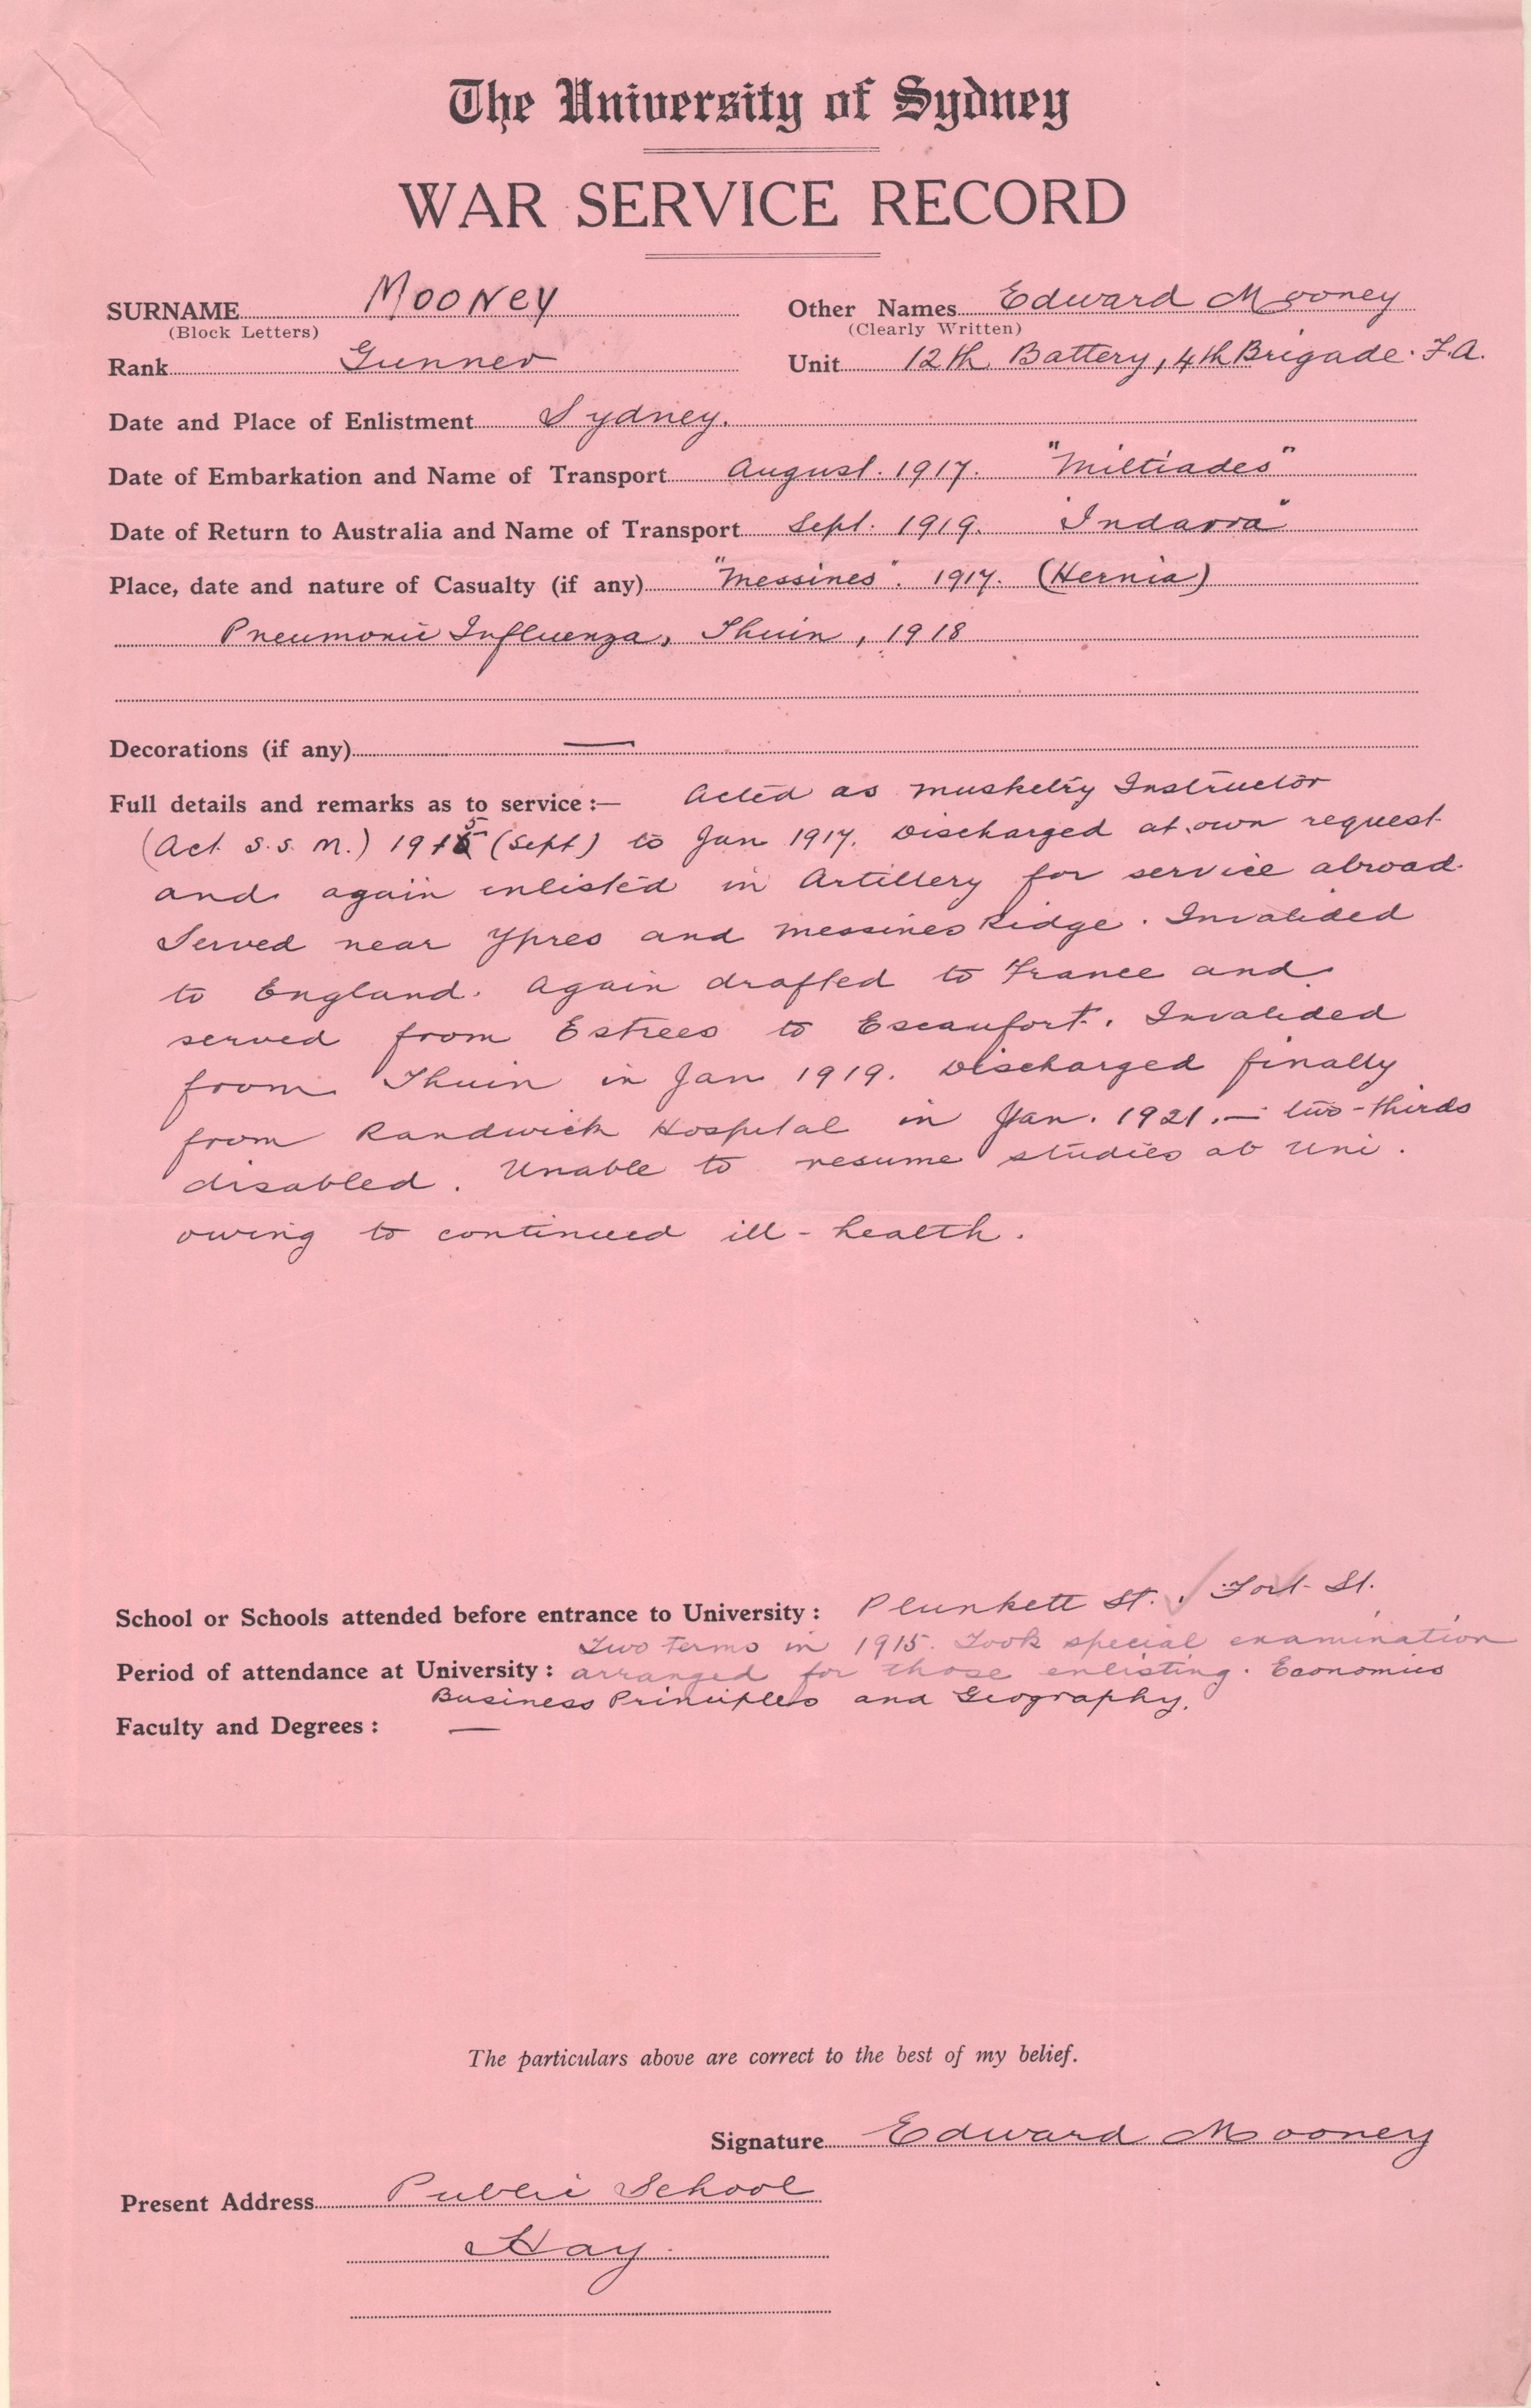 The University of Sydney
WAR SERVICE RECORD
SURNAME Mooney Other Names Edward Mooney
(Block Letters) (Clearly Written)
Rank Gunner Unit 12th Battery, 4th Brigade. F.A.
Date and Place of Enlistment Sydney.
Date of Embarkation and Name of Transport August. 1917. "Miltiades"
Date of Return to Australia and Name of Transport Sept. 1919. "Indarra"
Place, date and nature of Casualty (if any) "Messines". 1917. (Hernia)
Pneumonic Influenza, Thuin, 1918
Decorations (if any) —
Full details and remarks as to service:— Acted as Musketry Instructor
(Act. S.S.M.) 1915 (Sept) to Jan 1917. Discharged at own request
and again enlisted in Artillery for service abroad.
Served near Ypres and Messines Ridge. Invalided
to England. Again drafted to France and
served from Estrees to Escaufort. Invalided
from Thuin in Jan 1919. Discharged finally
from Randwick Hospital in Jan. 1921. — two-thirds
disabled. Unable to resume studies at Uni.
owing to continued ill-health.
School or Schools attended before entrance to University: Plunkett St., Fort St.
Two terms in 1915. Took special examination
Period of attendance at University: arranged for those enlisting. Economics
Business Principles and Geography.
Faculty and Degrees: —
The particulars above are correct to the best of my belief.
Signature Edward Mooney
Present Address Public School
Hay.